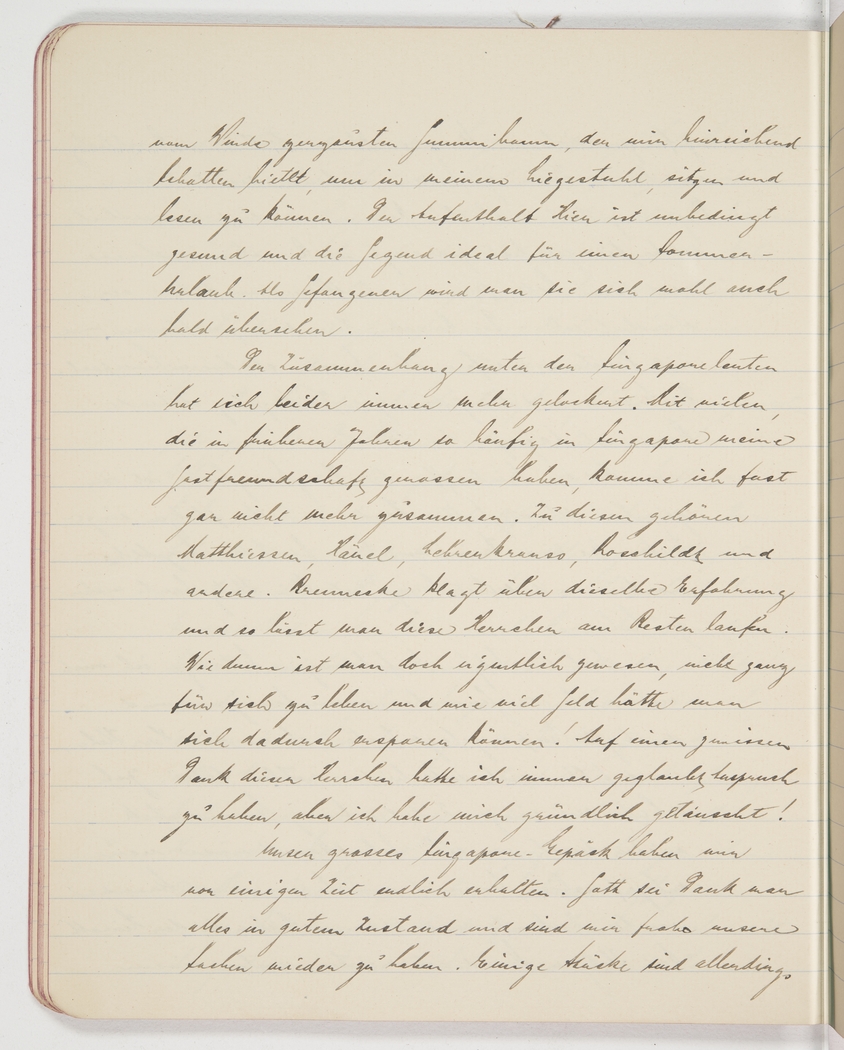 vom Winde zerzausten Gummibaum, der mir hinreichend
Schatten bietet, um in meinem Liegestuhl, sitzen und
lesen zu können. Der Aufenthalt hier ist unbedingt
gesund und die Gegend ideal für einen Sommer-
Urlaub. Als Gefangener wird man sie sich wohl auch
bald übersehen.
Der Zusammenhang unter den Singaporeleuten
hat sich leider immer mehr gelockert. Mit vielen,
die in früheren Jahren so häufig in Singapore meine
Gastfreundschaft genossen haben, komme ich fast
gar nicht mehr zusammen. Zu diesen gehören
Matthiessen, Hänel, Lehrenkrauss, Rosshildt und
andere. Krenneske klagt über dieselbe Erfahrung
und so lässt man diese Herrchen am Besten laufen.
Wie dumm ist man doch eigentlich gewesen, nicht ganz
für sich zu leben und wie viel Geld hätte man
sich dadurch ersparen können! Auf einen gewissen
Dank dieser Herrchen hatte ich immer geglaubt, Anspruch
zu haben, aber ich habe mich gründlich getäuscht!
Unser grosses Singapore-Gepäck haben wir
vor einiger Zeit endlich erhalten. Gott sei Dank war
alles in gutem Zustand und sind wir frohe unsere
Sachen wieder zu haben. Einige Stücke sind allerdings